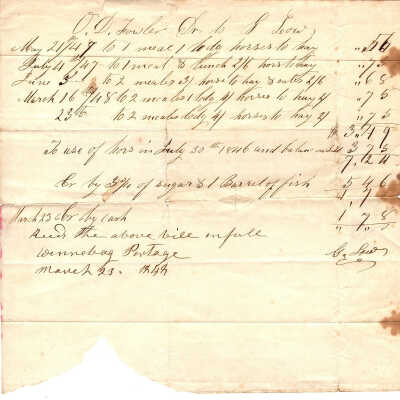 O. D. Fowler Dr to
May 21st 47 to 1 meal 1 bdg horses to hay " 54
July 4th /47 to 1 meal & lunch 2/6 horse to hay " 75
June 3d to 2 meals 3/ horse to hay & oats 2/6 " 68
March 16th /48 to 2 meals 1 bdg 4/ horses to hay 2/ " 75
23th to 2 meals bdg 4/ horses to hay 2/ " 75
$ 3 49
To use of hors in July 30th 1846 and balance 3 75
7,24
Cr by of sugar & 1 Barrel of fish 5 46
March 23 Cr by cash 1 78
Recd the above bill in full
Winnebag Portage
March 23. 1848